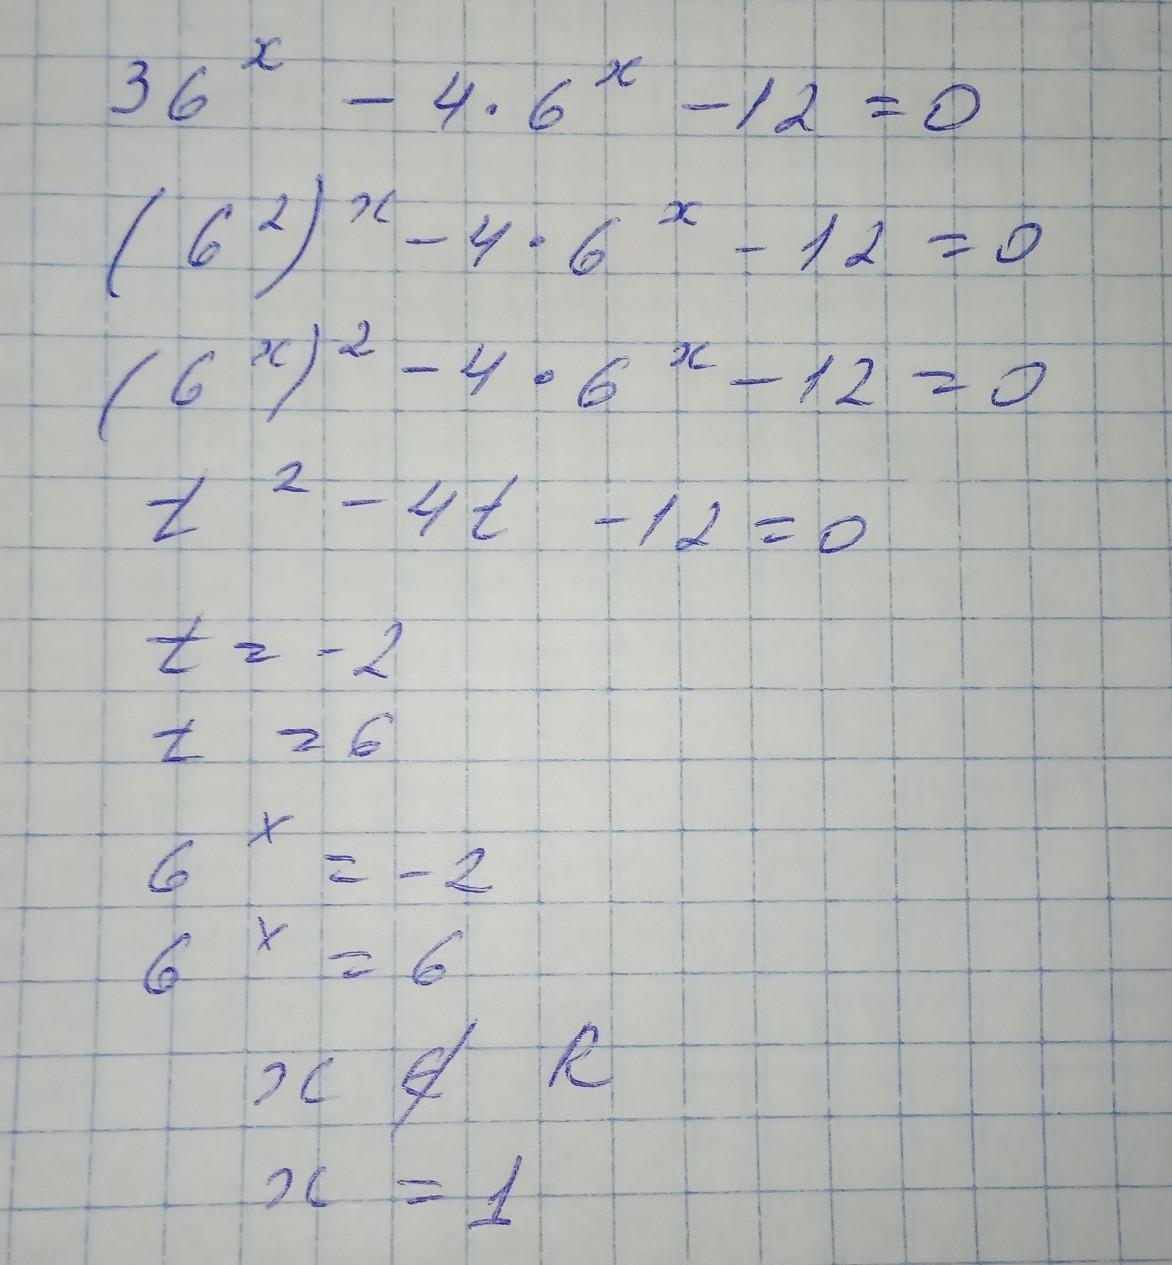 36^x - 4·6^x - 12 = 0
(6^2)^x - 4·6^x - 12 = 0
(6^x)^2 - 4·6^x - 12 = 0
t^2 - 4t - 12 = 0
t = -2
t = 6
6^x = -2
6^x = 6
x ∉ R
x = 1